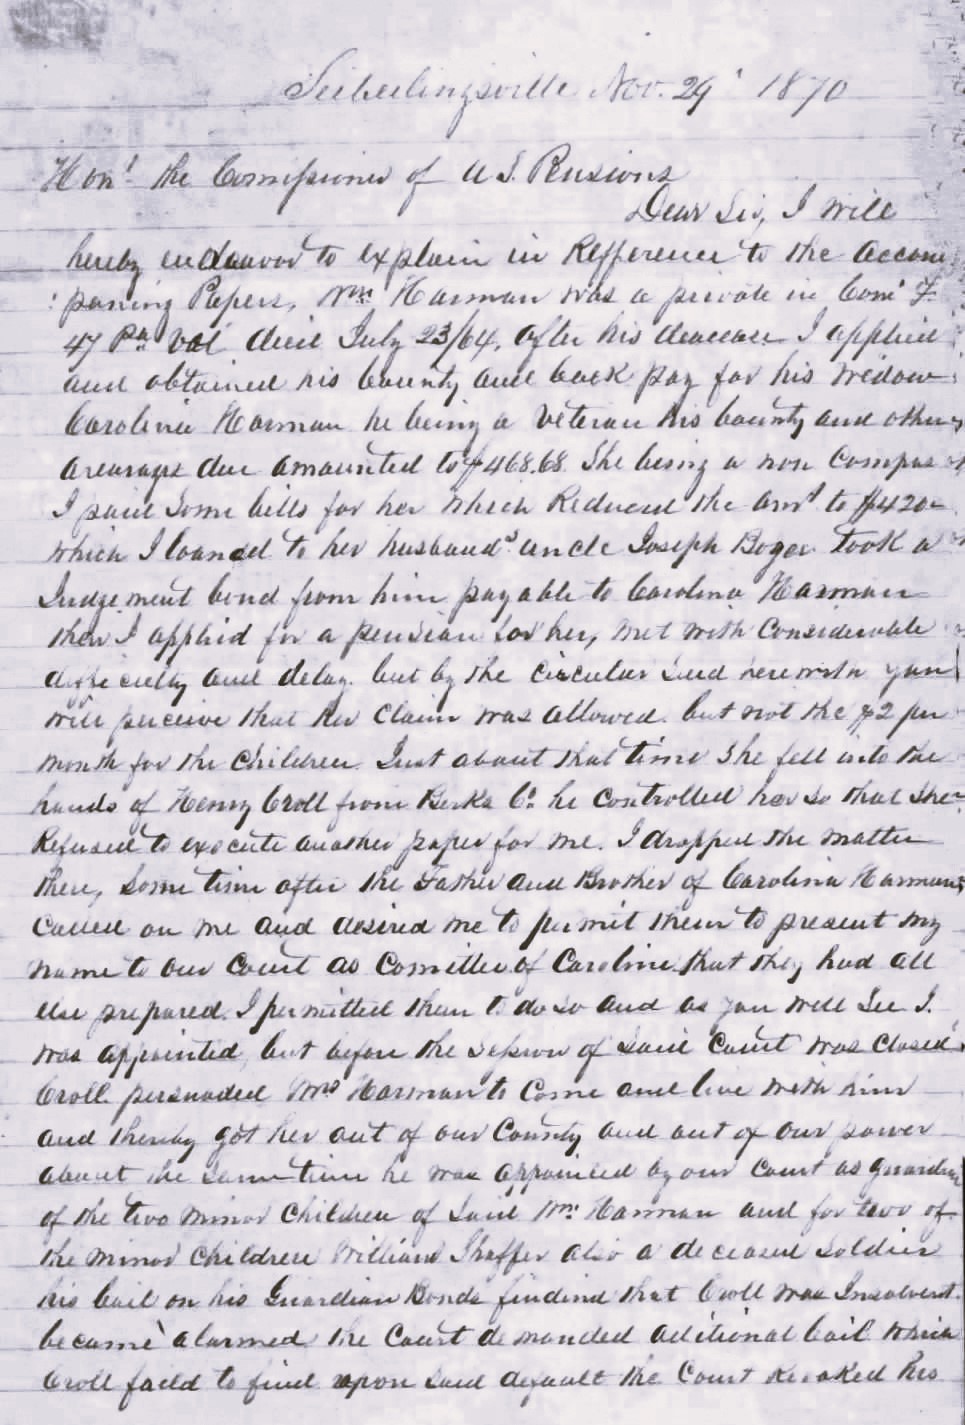 Seiberlingsville Nov. 29' 1870
Hon' the Comissioner of U S. Pensions
Dear Sir, I will
hereby endeavor to explain in Refference to the accom
paning Papers, Wm Harman was a private in Com' F.
47 Pa Vol died July 23/64, after his decease I applied
and obtained his bounty and back pay for his Widow
Carolina Harman he being a Veteran his bounty and other
arearages due amounted to $468.68. She being a non Compus
I paid Some bills for her which Reduced the amt to $420
which I loaned to her husband's uncle Joseph Boger took a
Judgement bond from him payable to Carolina Harman
then I applied for a pension for her, met with Considerable
difficulty and delay. but by the Circular Send herewith you
will perceive that her Claim was allowed. but not the $2 per
month for the Children. Just about that time She fell into the
hands of Henry Croll from Berks Co. he Controlled her so that She
Refused to execute another paper for me. I dropped the matter
then, Some time after the Father and Brother of Carolina Harman
Called on me and desired me to permit them to present my
name to our Court as Comittee of Carolina that they had all
else prepared. I permitted them to do so and as you will See I.
was appointed, but before the session of Said Court was Closed
Croll persuaded Mrs Harman to Come and live with him
and thereby got her out of our County and out of our power
about the same time he was appointed by our Court as guardian
of the two minor Children of Said Wm Harman and for two of
the minor Children William Shaffer also a deceased Soldier
his bail on his Guardian Bonds findind that Croll was Insolvent
became alarmed the Court demanded aditional bail which
Croll faild to find upon Said default the Court Revoked his